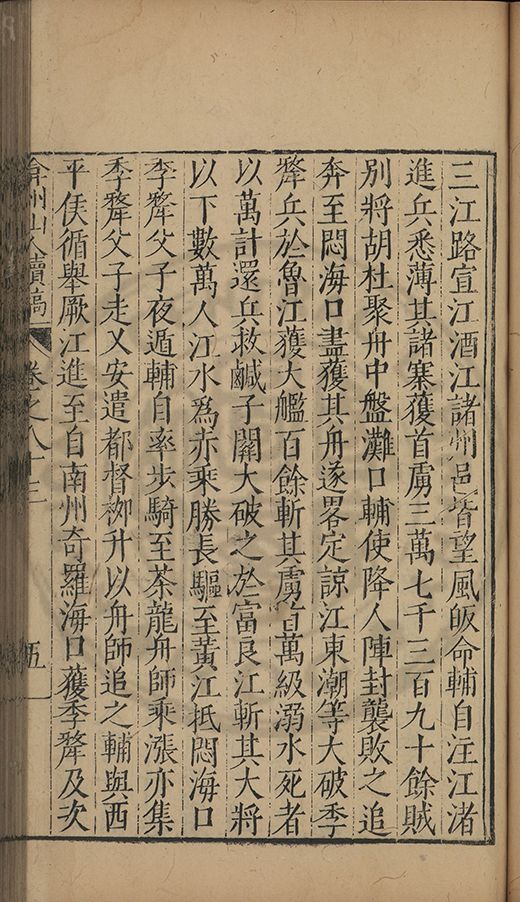 三江路宣江洒江諸州邑皆望風皈命輔自注江渚
進兵悉薄其諸寨獲首虜三萬七千三百九十餘賊
別將胡杜聚舟中盤灘口輔使降人陣封襲敗之追
奔至悶海口盡獲其舟遂畧定諒江東潮等大破季
犛兵於魯江獲大艦百餘斬其虜首萬級溺水死者
以萬計還兵救鹹子關大破之於富良江斬其大將
以下數萬人江水爲赤乘勝長驅至黃江抵悶海口
季犛父子夜遁輔自率步騎至茶龍舟師乘漲亦集
季犛父子走乂安遣都督栁升以舟師追之輔與西
平矦循舉厥江進至自南州奇羅海口獲季犛及次
弇州山人續稿 卷之八十三 五